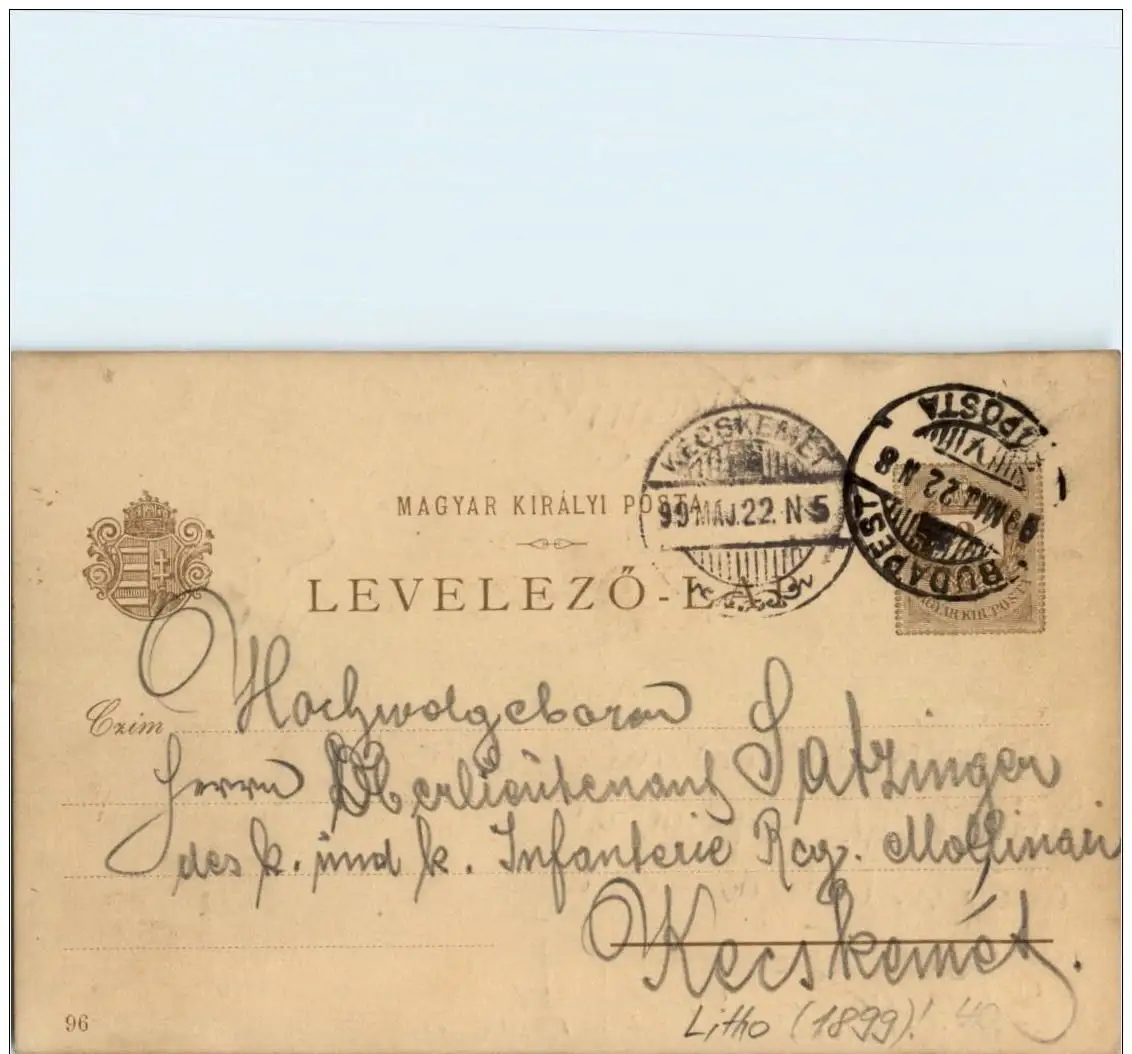 KECSKEMÉT
99 MÁJ.22. N 5
POSTA
99 MÁJ 22 N 8
BUDAPEST
MAGYAR KIRÁLYI POSTA
LEVELEZŐ-LAP
MAGYAR KIR. POSTA
Czim Hochwolgeboren
Herrn Oberlieutenant Satzinger
des k. und k. Infanterie Reg. Mollinari
Kecskemét.
96
Litho (1899)!